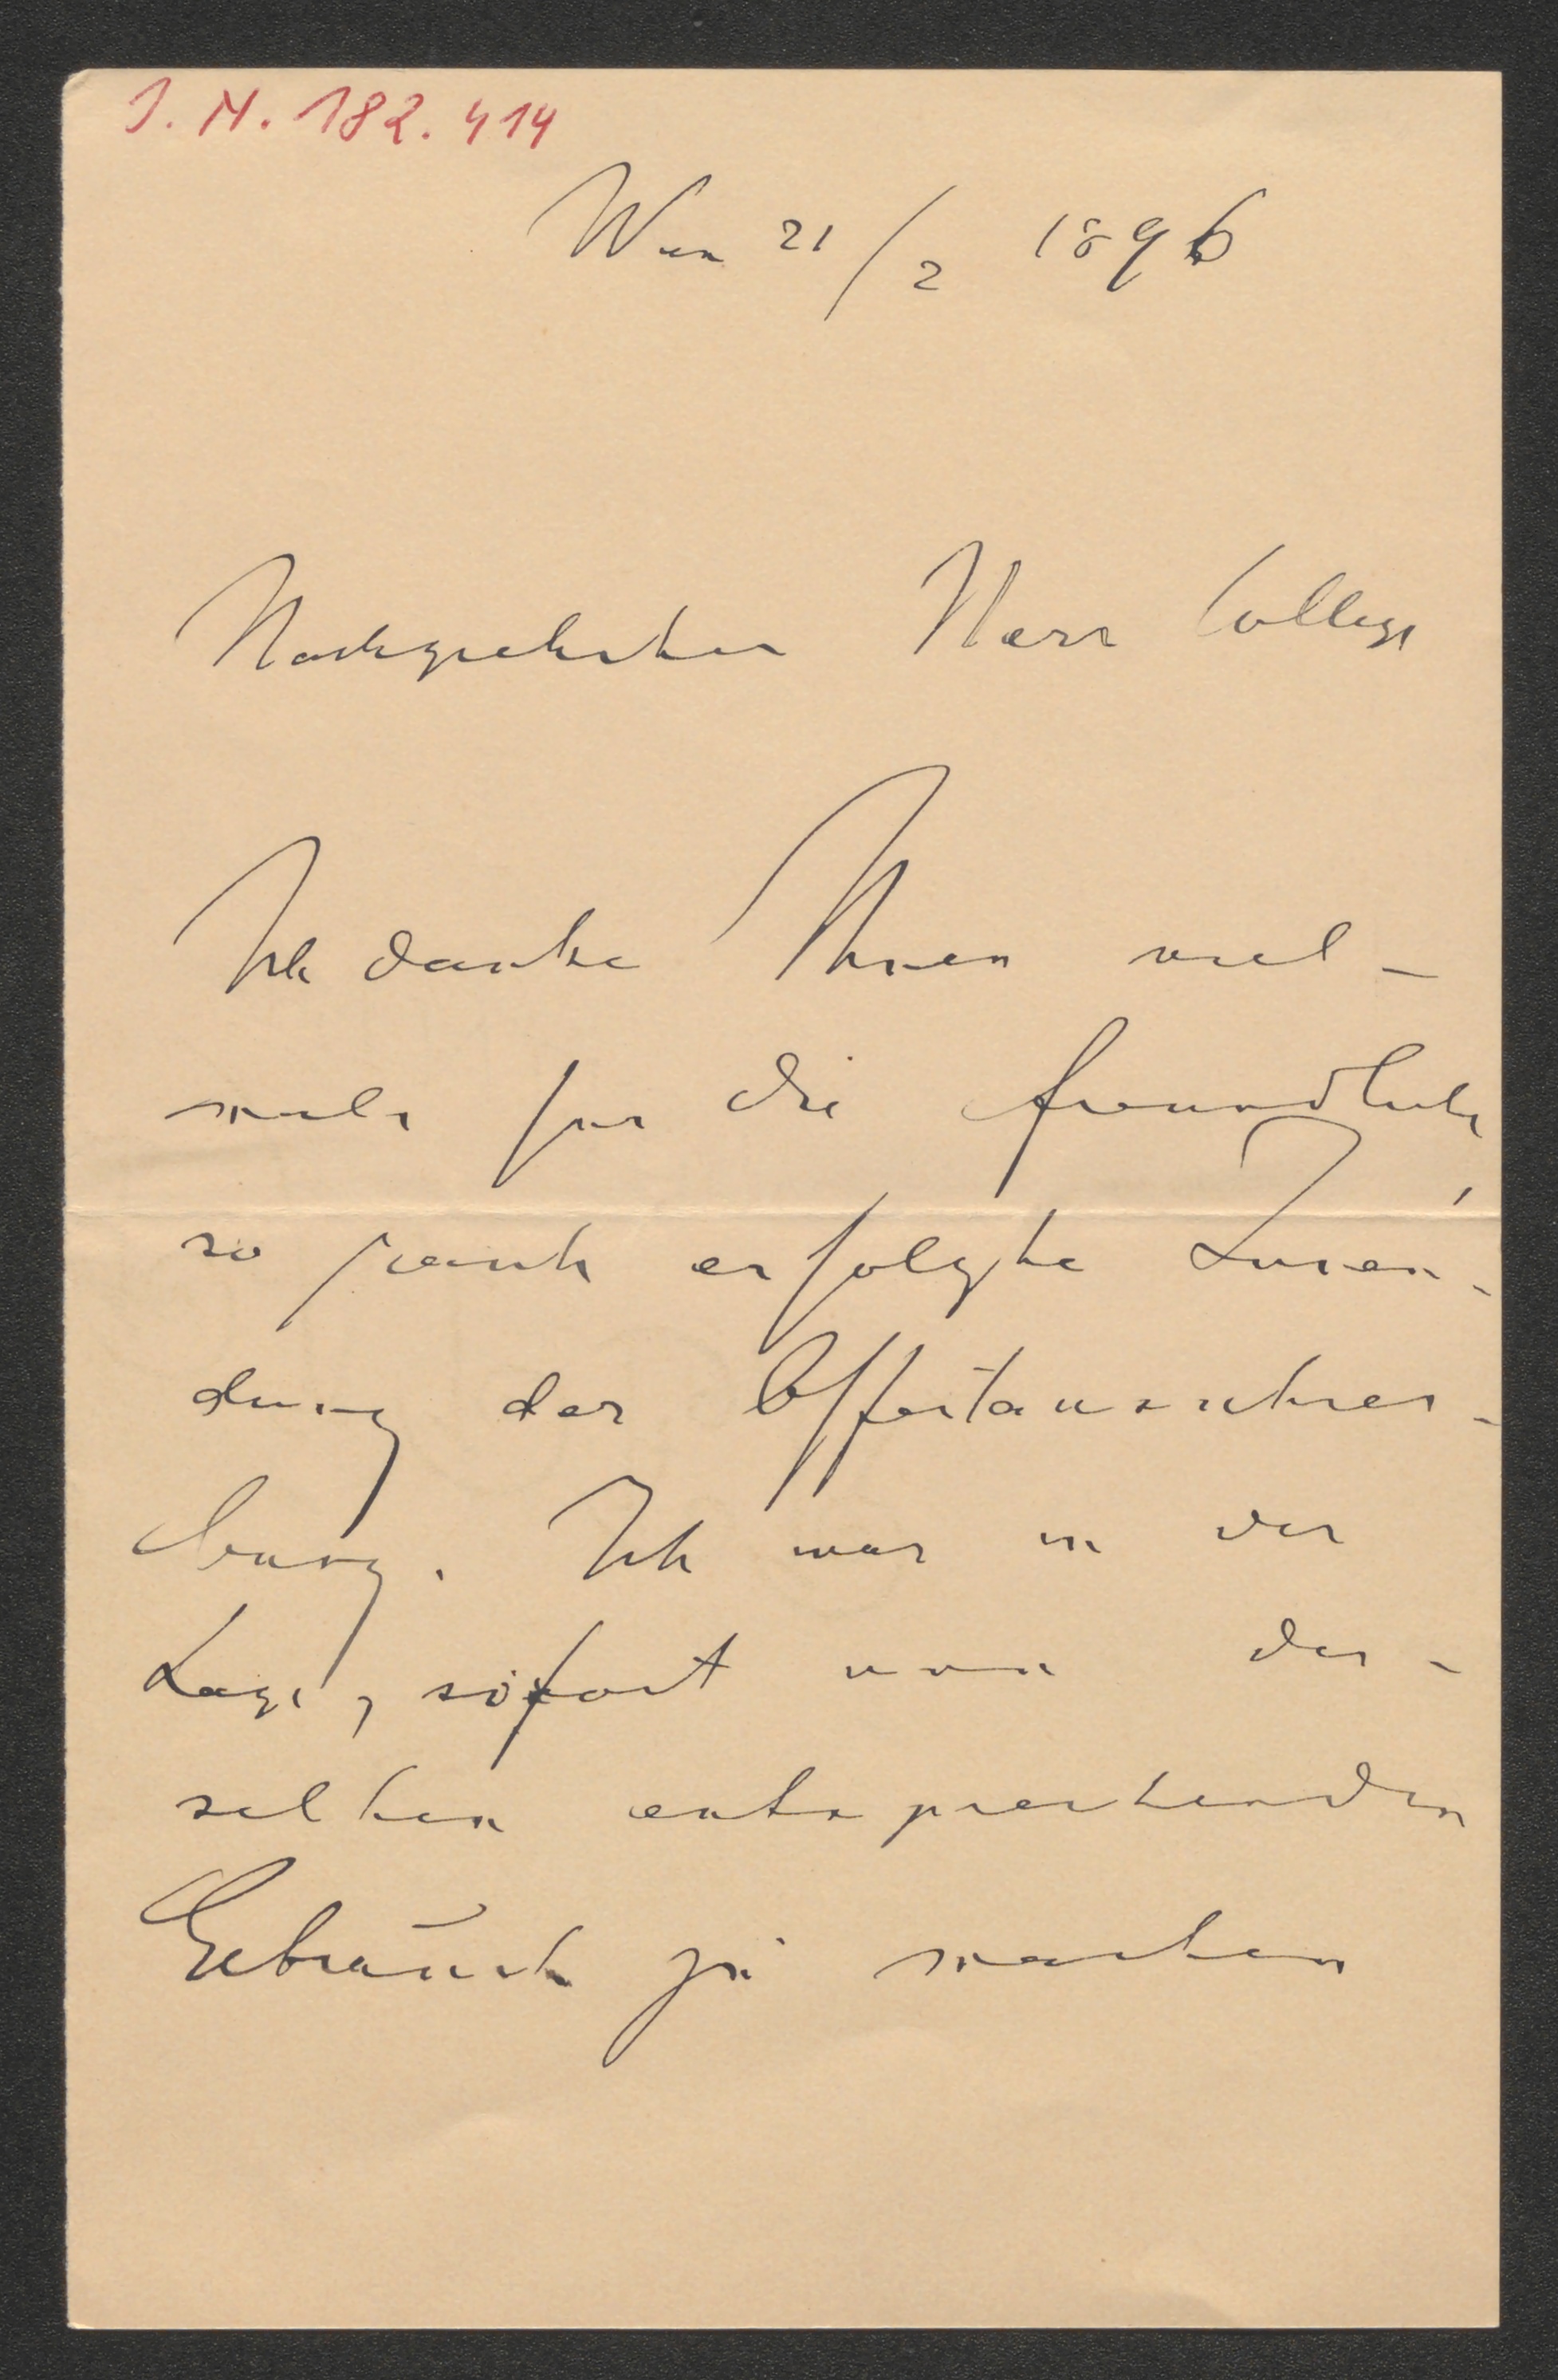 J. N. 182.414
Wien 21/2 1896
Hochgeehrter Herr College
Ich danke Ihnen viel-
mals für die freundliche,
so rasch erfolgte Zusen-
dung der Offertausschrei-
bung. Ich war in der
Lage, sofort von der-
selben entsprechenden
Gebrauch zu machen